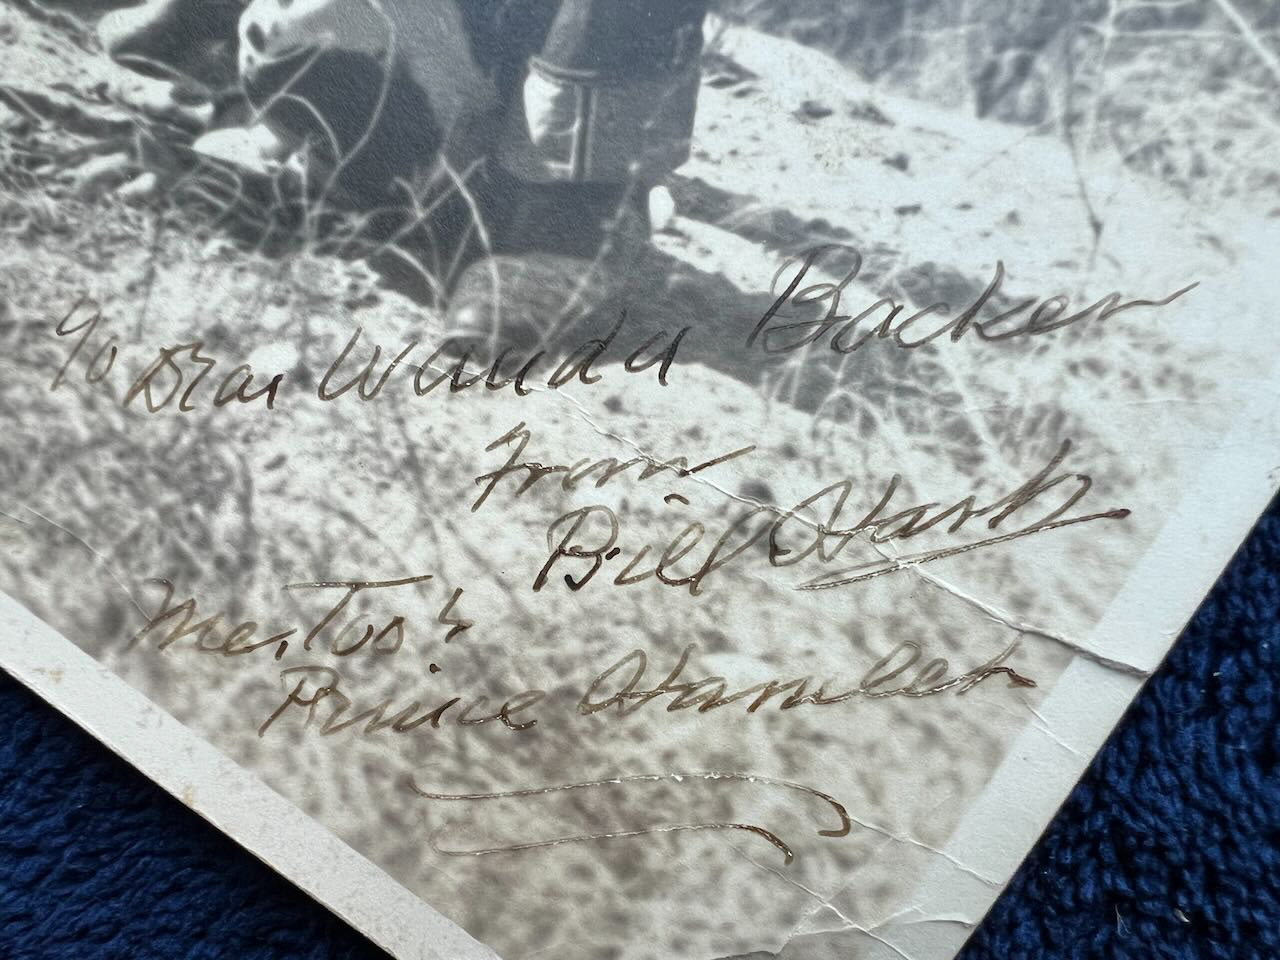 To Dear Wanda Backen
From
Bill Hart
Me, Too's
Prince Hamlet